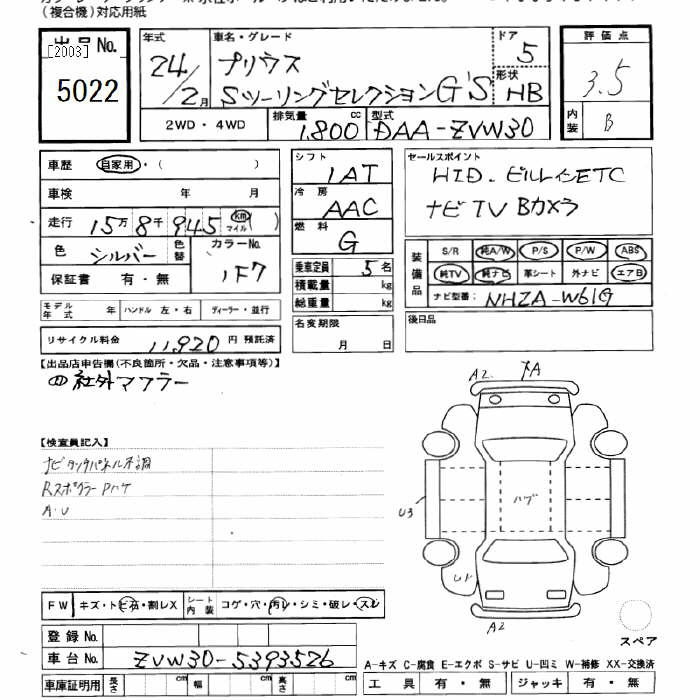 (複合機)対応用紙
出品No.
[2003]
5022
年式
24/2月
車名・グレード
プリウス
Sツーリングセレクション G'S
ドア
5
形状
HB
評価点
3.5
内装
B
2WD・4WD
排気量
1,800 cc
型式
DAA-ZVW30
車歴 自家用・( )
車検 年 月
走行 15万8千945 km マイル ( )
色 シルバー 色替
カラーNo.
1F7
保証書 有・無
モデル年式 年 ハンドル 左・右 ディーラー・並行
リサイクル料金 11,920 円 預託済
シフト
1AT
冷房
AAC
燃料
G
乗車定員 5名
積載量 kg
総重量 kg
名変期限
月 日
セールスポイント
HID. ビルトインETC
ナビTV Bカメラ
装備品
S/R 純A/W P/S P/W ABS
純TV 純ナビ 革シート 外ナビ エアB
ナビ型番: NHZA-W61G
後日品
【出品店申告欄(不良箇所・欠品・注意事項等)】
社外マフラー
【検査員記入】
ナビタッチパネル不調
Rスポイラー Pハゲ
A・U
A2
A
U3
ハゲ
U1
A2
スペア
FW キズ・トビ石・割レX
シート内装 コゲ・穴・汚レ・シミ・破レ・スレ
登録No.
車台No. ZVW30-5393526
車庫証明用 長さ cm 幅 cm 高さ cm
A-キズ C-腐食 E-エクボ S-サビ U-凹ミ W-補修 XX-交換済
工具 有・無 ジャッキ 有・無